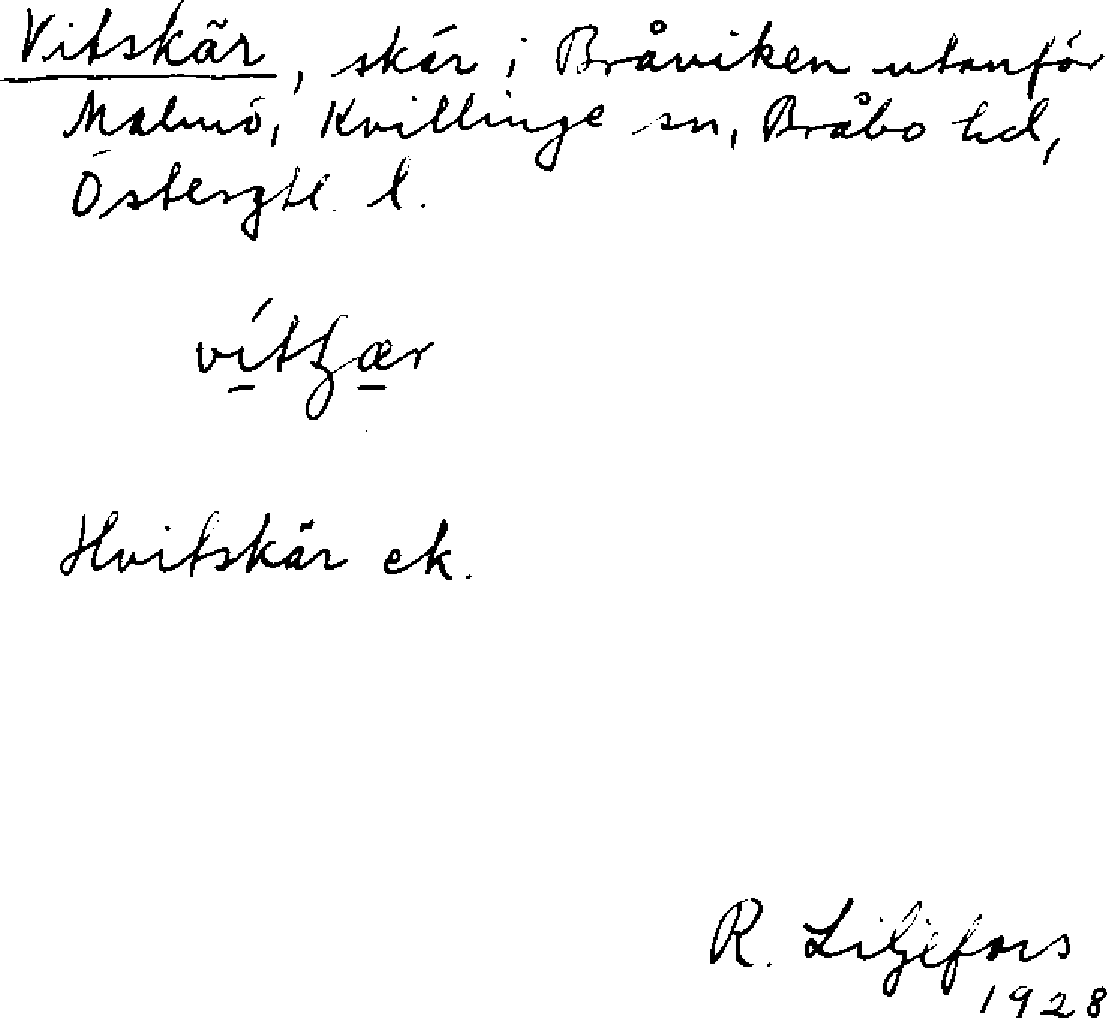 Vitskär, skär i Bråviken utanför
Malmö, Kvillinge sn, Bråbo hd,
Östergtl. l.
Hvitskär ek.
R. Liljefors
1928